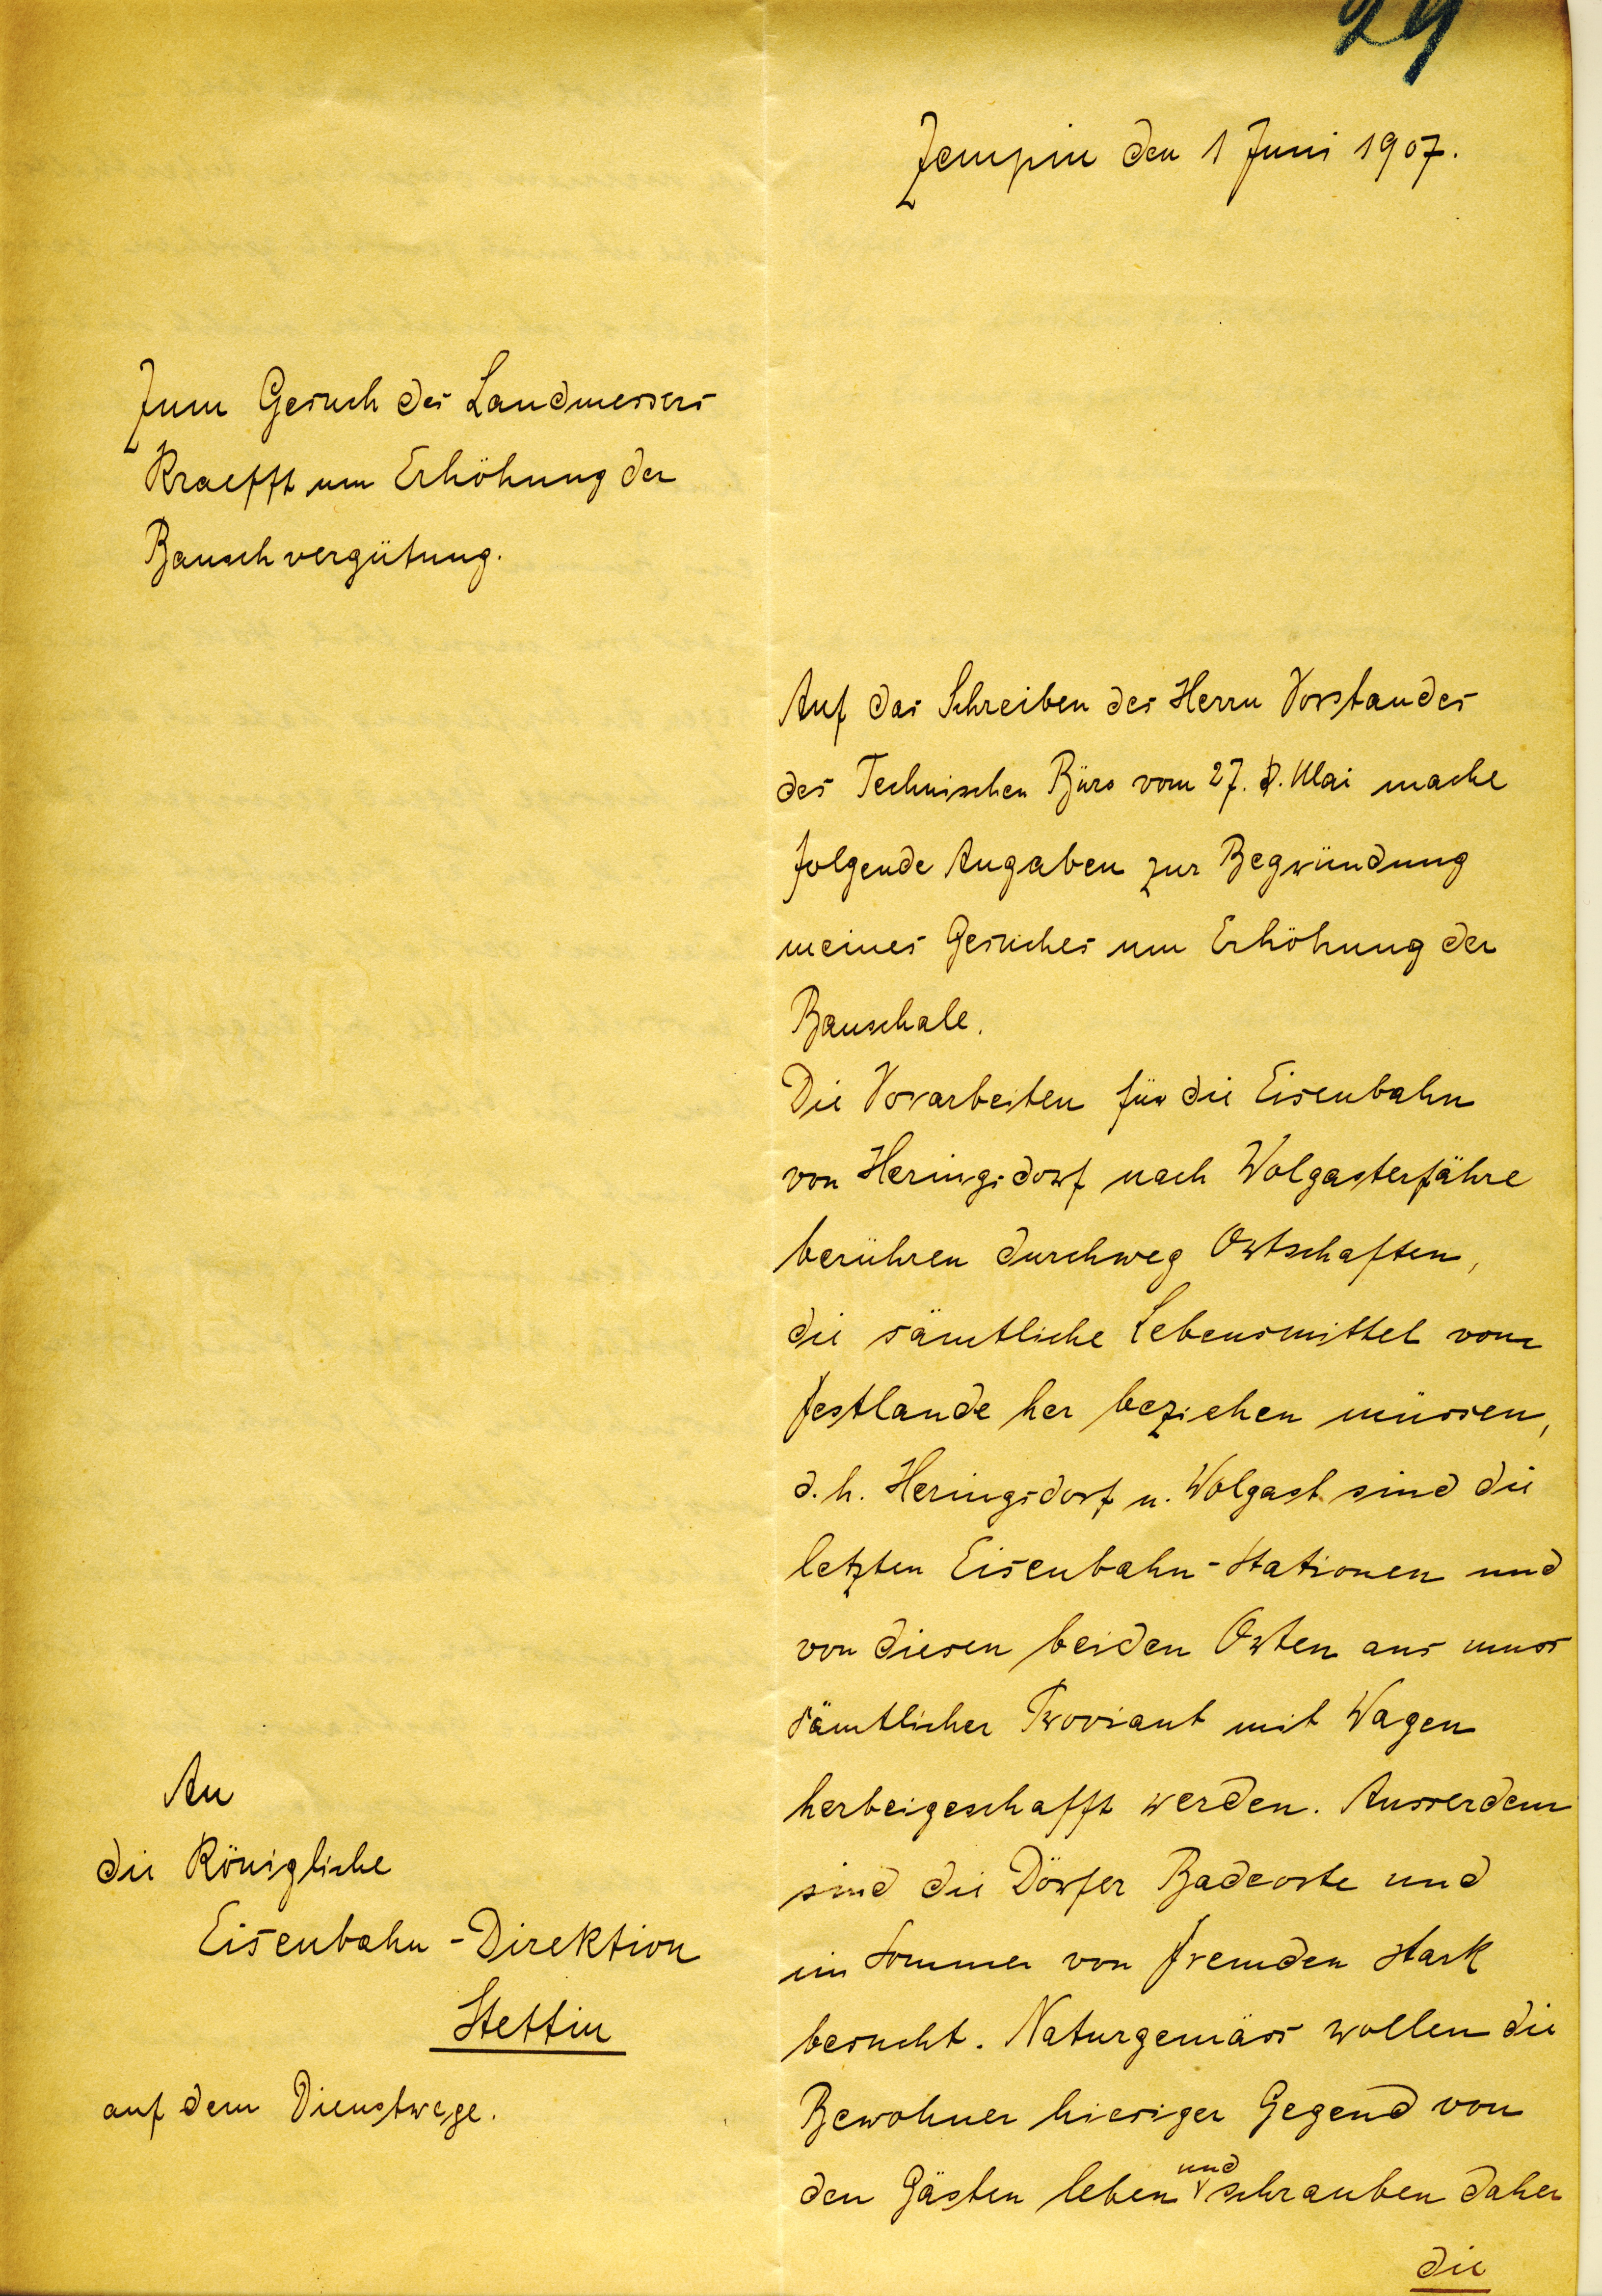 29
Zempin den 1 Juni 1907.
Zum Gesuch des Landmessers
Kraefft um Erhöhung der
Bauschvergütung.
Auf das Schreiben des Herrn Vorstandes
des Technischen Büro vom 27. Mai mache
folgende Angaben zur Begründung
meines Gesuches um Erhöhung der
Bauschale.
Die Vorarbeiten für die Eisenbahn
von Heringsdorf nach Wolgasterfähre
berühren durchweg Ortschaften,
die sämtliche Lebensmittel vom
Festlande her beziehen müssen,
d. h. Heringsdorf u. Wolgast sind die
letzten Eisenbahn-Stationen und
von diesen beiden Orten aus muss
sämtlicher Proviant mit Wagen
herbeigeschafft werden. Ausserdem
sind die Dörfer Badeorte und
im Sommer von Fremden stark
besucht. Naturgemäss wollen die
Bewohner hiesiger Gegend von
den Gästen leben und schrauben daher
die
An
die Königliche
Eisenbahn-Direktion
Stettin
auf dem Dienstwege.